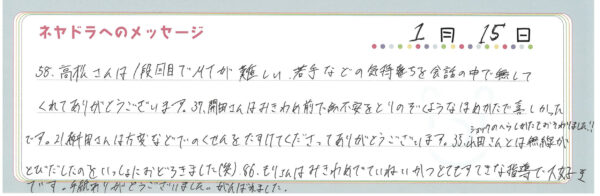 ネヤドラへのメッセージ
1月15日
58.高松さんは1段回目でMTが難しい、苦手などの気持を会話の中で無して
くれてありがとうございます。37.開田さんはおきわめ前での不安をとりのぞくようなはめかたで喜しかった
です。21.幹田さんは方変などでのくせんをたすけてくださってありがとうございます。35.永田さんとは無線が
ショックのへらしかたもおそわりました!!
とびだしたのをいっしょにおどろきました(笑) 86.もりさんはみきわめでていねいかつとてもすてきな指導で大好き
です。手紙ありがとうございました。がんばれました。